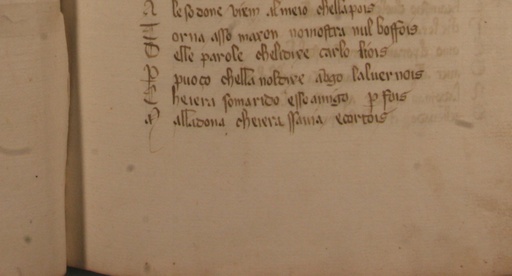 A le so done vien al meio chella pois
T orna asso maron no mostra nul boffois
D elle parole chel coire carlo liois
P puoco chella noltoire abgo laluernois
C heiera so marido esso amigo p fois
M alladona cheiera ssauia ecortois